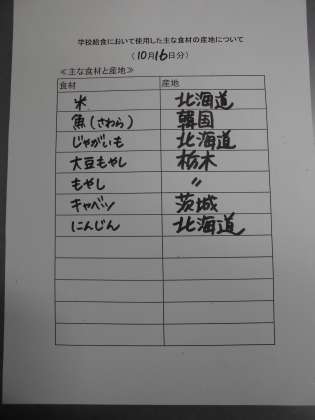 学校給食において使用した主な食材の産地について
（10月16日分）
≪主な食材と産地≫
食材 産地
米 北海道
魚(さわら) 韓国
じゃがいも 北海道
大豆もやし 栃木
もやし 〃
キャベツ 茨城
にんじん 北海道